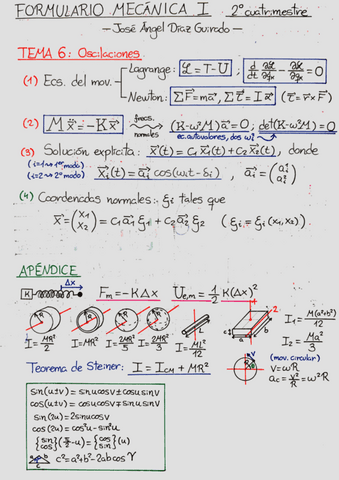 FORMULARIO MECÁNICA I 2º cuatrimestre
— José Ángel Díaz Guirado —
TEMA 6: Oscilaciones
(1) Ecs. del mov.
Lagrange: ℒ = T - U ; d/dt ∂ℒ/∂q̇ₖ - ∂ℒ/∂qₖ = 0
Newton: ΣF⃗ = ma⃗, Στ⃗ = Iα⃗ (τ⃗ = r⃗ × F⃗)
(2) M ẍ⃗ = -K x⃗ frecs. normales (K - ω²M) a⃗ = 0 ; det(K - ω²M) = 0
ec. autovalores, dos ωᵢ
(3) Solución explícita: x⃗(t) = C₁x⃗₁(t) + C₂x⃗₂(t), donde
(i=1 → 1er modo)
(i=2 → 2º modo) x⃗ᵢ(t) = a⃗ᵢ cos(ωᵢt - δᵢ) , a⃗ᵢ =
(4) Coordenadas normales: ξᵢ tales que
x⃗ = (x₁ x₂) = C₁a⃗₁ξ₁ + C₂a⃗₂ξ₂ (ξᵢ = ξᵢ(x₁,x₂))
APÉNDICE
K Δx Fₘ = -KΔx Uₑ,ₘ = 1/2 K(Δx)²
R R R R L a b
I = MR²/2 I = MR² I = 2MR²/5 I = 2MR²/3 I = ML²/12 I₁ = M(a²+b²)/12
I₂ = Ma²/3
Teorema de Steiner: I = I_CM + MR²
(mov. circular)
v = ωR
a_c = v²/R = ω²R
sin(u±v) = sinu cosv ± cosu sinv
cos(u±v) = cosu cosv ∓ sinu sinv
sin(2u) = 2sinu cosu
cos(2u) = cos²u - sin²u
{sin cos}(π/2 - u) = {cos sin}(u)
c² = a² + b² - 2ab cos γ